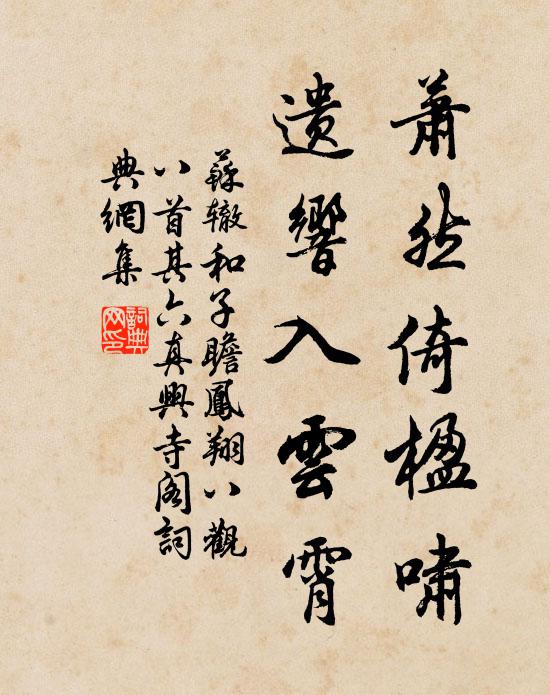 蕭然倚楹嘯
遺響入雲霄
蘇轍和子瞻鳳翔八觀
八首其六真興寺閣詞
典網集
詞典网印